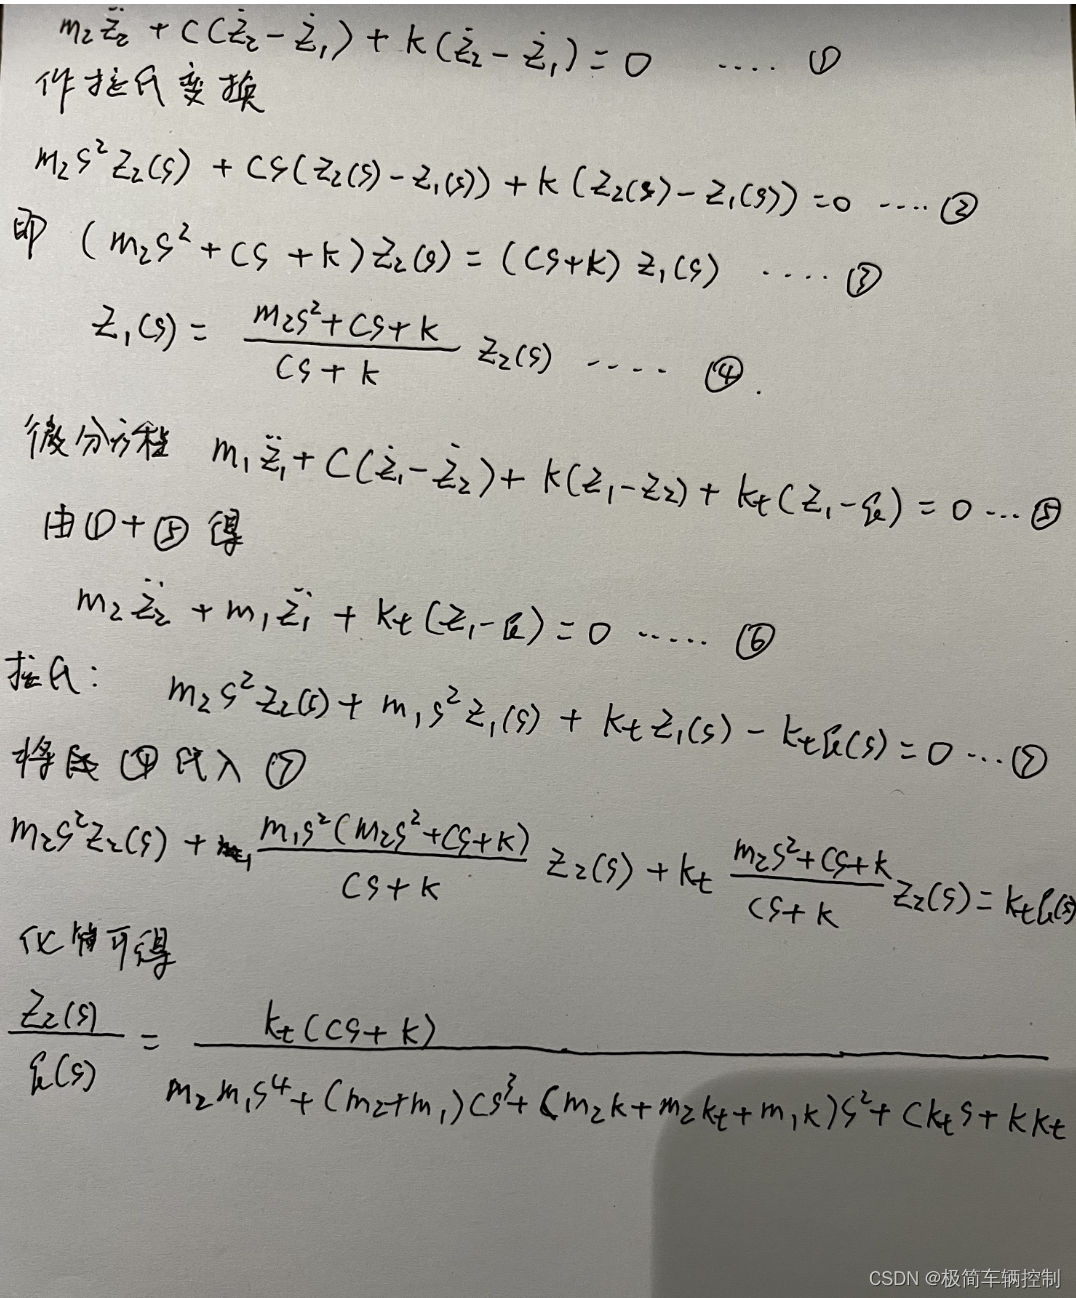 m₂z̈₂ + C(ż₂ - ż₁) + k(ż₂ - ż₁) = 0 .... ①
作拉氏变换
m₂s²Z₂(s) + Cs(Z₂(s) - Z₁(s)) + k(Z₂(s) - Z₁(s)) = 0 .... ②
即 (m₂s² + Cs + k)Z₂(s) = (Cs+k) Z₁(s) ..... ③
Z₁(s) = (m₂s² + Cs + k)/(Cs + k) Z₂(s) .... ④.
微分方程 m₁z̈₁ + C(ż₁ - ż₂) + k(z₁ - z₂) + kt(z₁ - q) = 0 ... ⑤
由①+⑤得
m₂z̈₂ + m₁z̈₁ + kt(z₁ - q) = 0 ..... ⑥
拉氏: m₂s²Z₂(s) + m₁s²Z₁(s) + ktZ₁(s) - ktq(s) = 0 ... ⑦
将 ④代入⑦
m₂s²Z₂(s) + m₁s²(m₂s² + Cs + k)/(Cs + k) Z₂(s) + kt (m₂s² + Cs + k)/(Cs + k) Z₂(s) = ktq(s)
化简可得
Z₂(s)/q(s) = kt(Cs + k)/(m₂m₁s⁴ + (m₂+m₁)Cs³ + (m₂k + m₂kt + m₁k)s² + Ckts + kkt)
CSDN @极简车辆控制